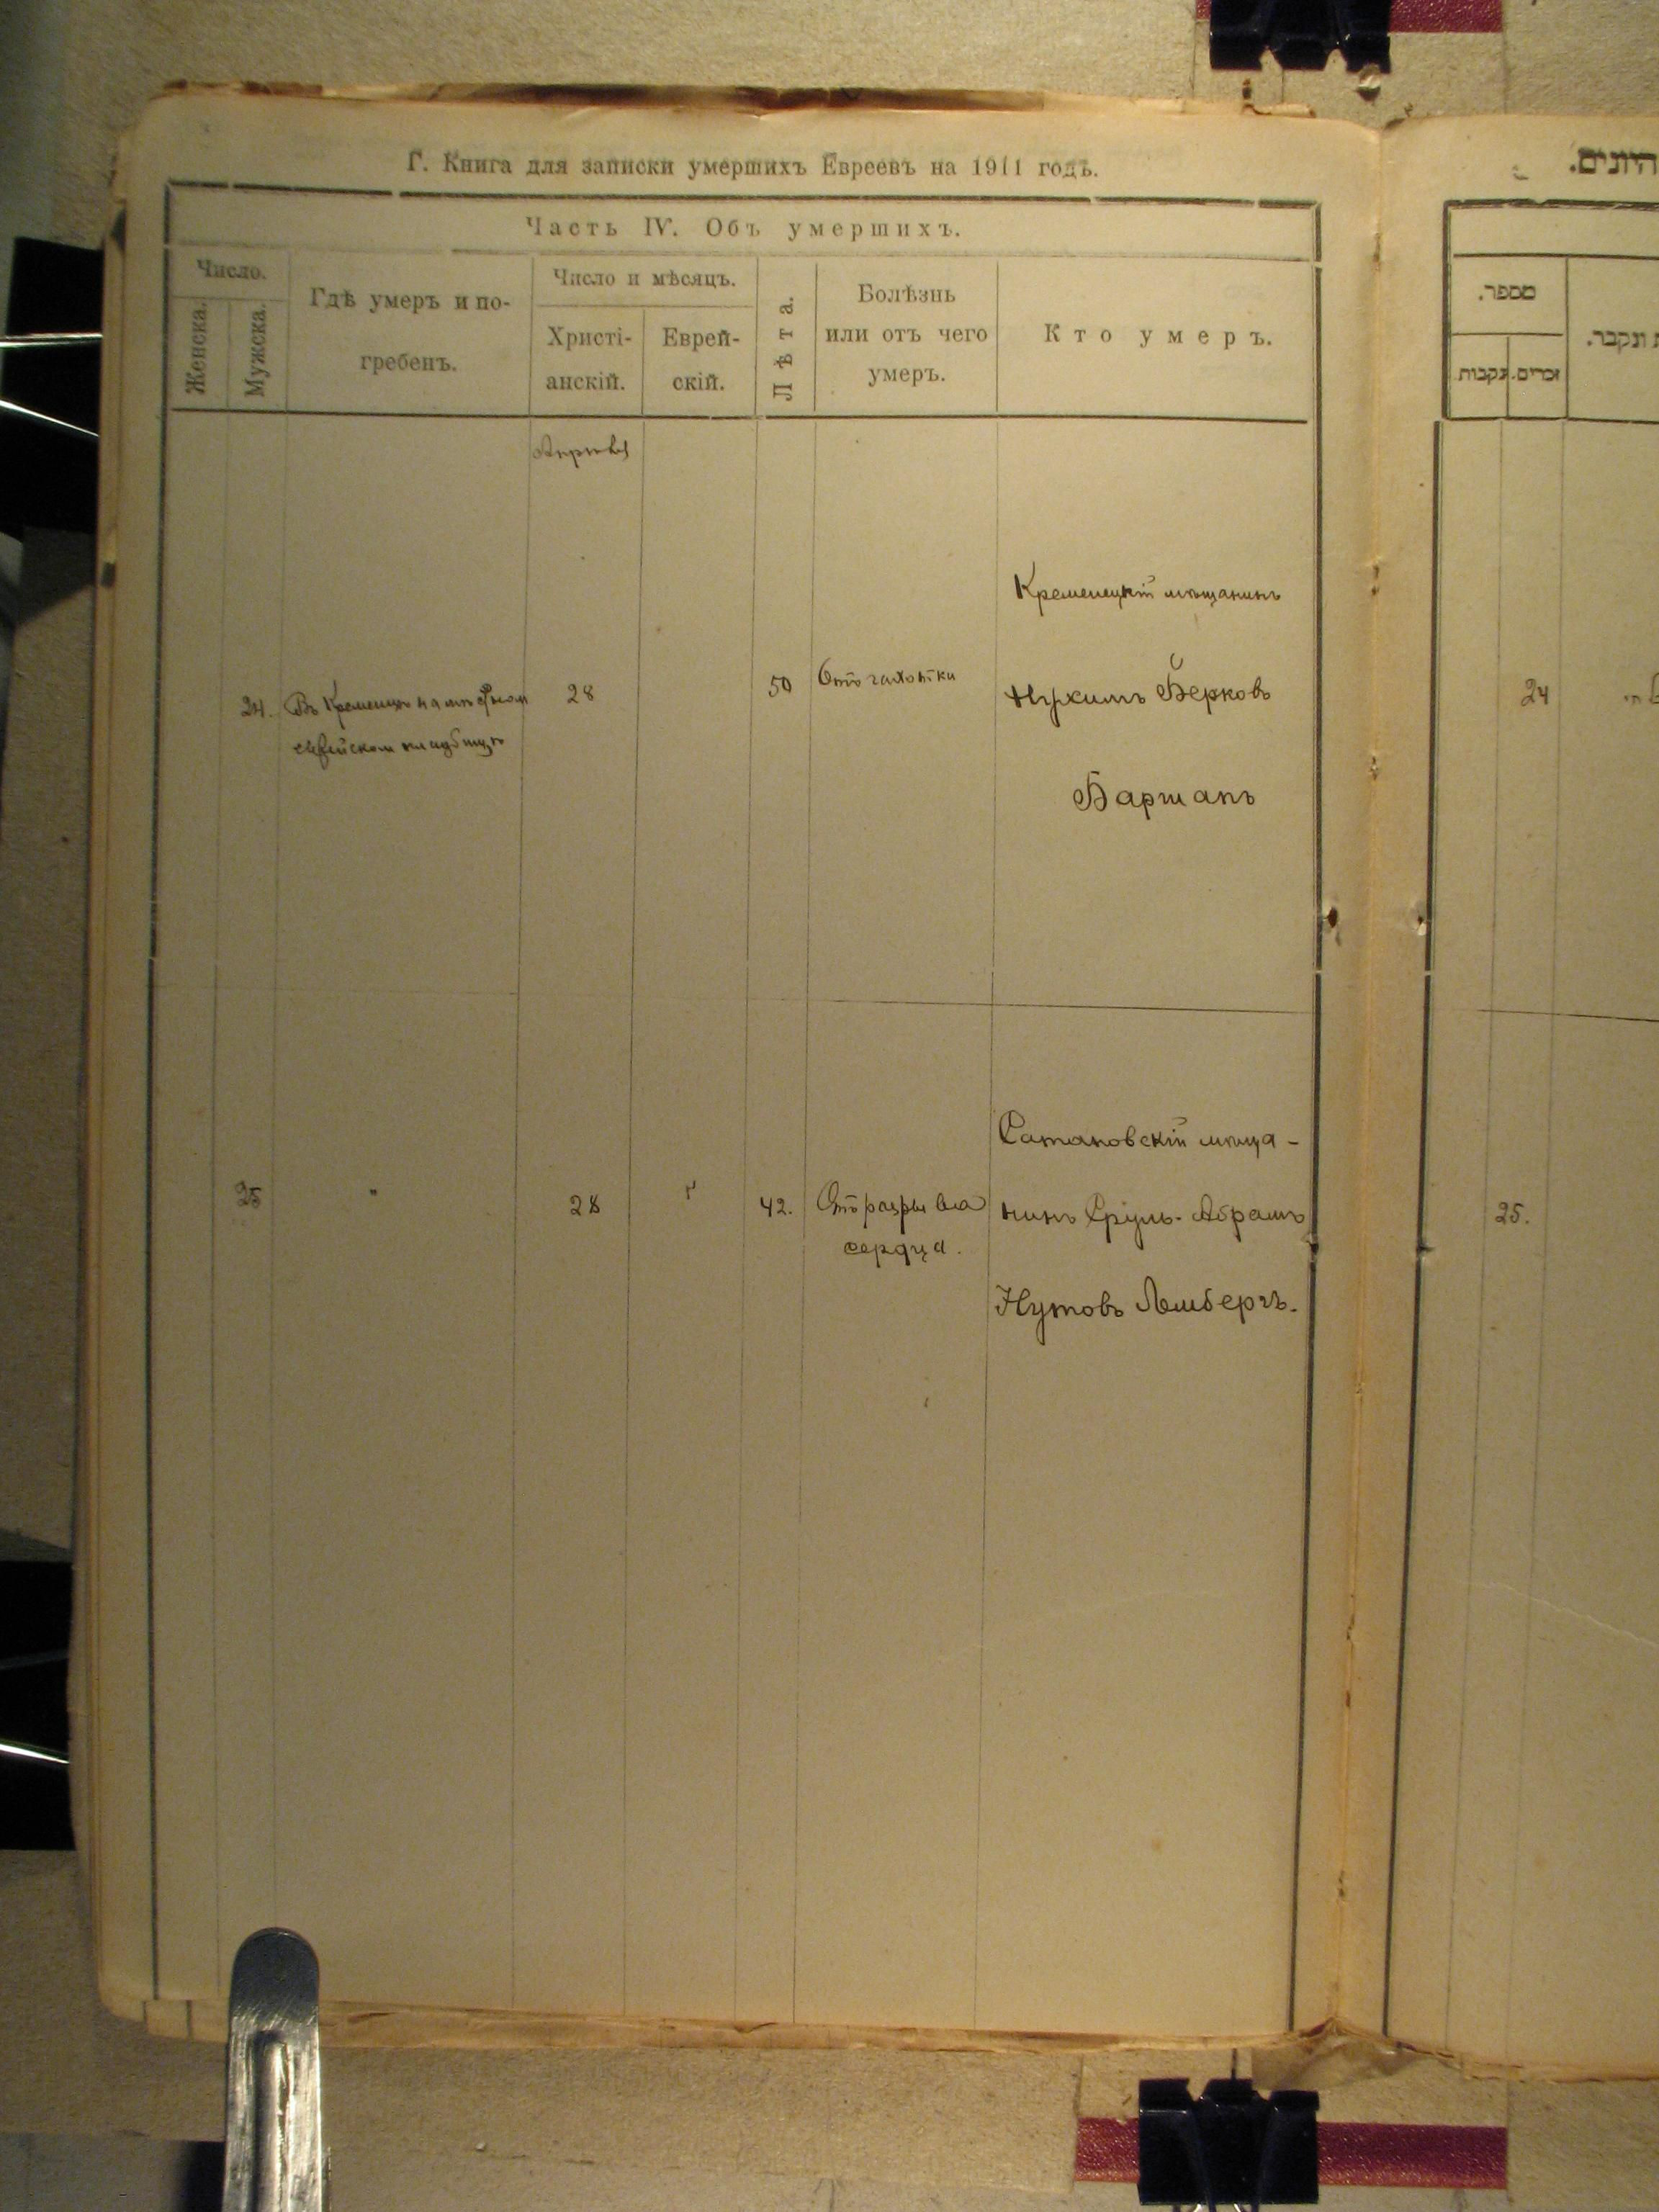 Г. Книга для записки умершихъ Евреевъ на 1911 годъ.
Часть IV. Объ умершихъ.
Число.
Женска.
Мужска.
Гдѣ умеръ и по-
гребенъ.
Число и мѣсяцъ.
Христі-
анскій.
Еврей-
скій.
Лѣта.
Болѣзнь
или отъ чего
умеръ.
Кто умеръ.
Апрѣля
24.
Въ Кременцѣ на мѣстном
еврейском кладбищѣ
28
50
Отъ чахотки
Кременецкій мѣщанинъ
Нухимъ Берковъ
Баршапъ
25
"
28
"
42.
Отъ разрыва
сердца.
Сатановскій мѣща-
нинъ Сруль-Абрамъ
Нутовъ Лемберъ.
היונים.
מספר.
זכרים.
נקבות
ונקבר.
24
25.